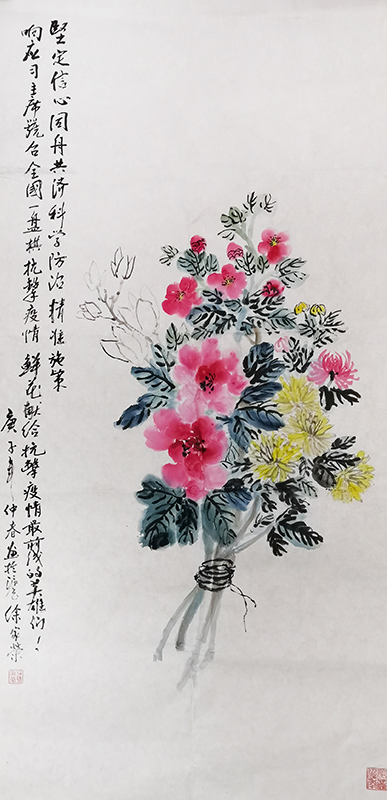 堅定信心同舟共济科学防治精准施策
响应习主席號召全國一盘棋抗擊疫情鲜花献给抗擊疫情最前线的英雄们！
庚子年仲春画於 徐家榮